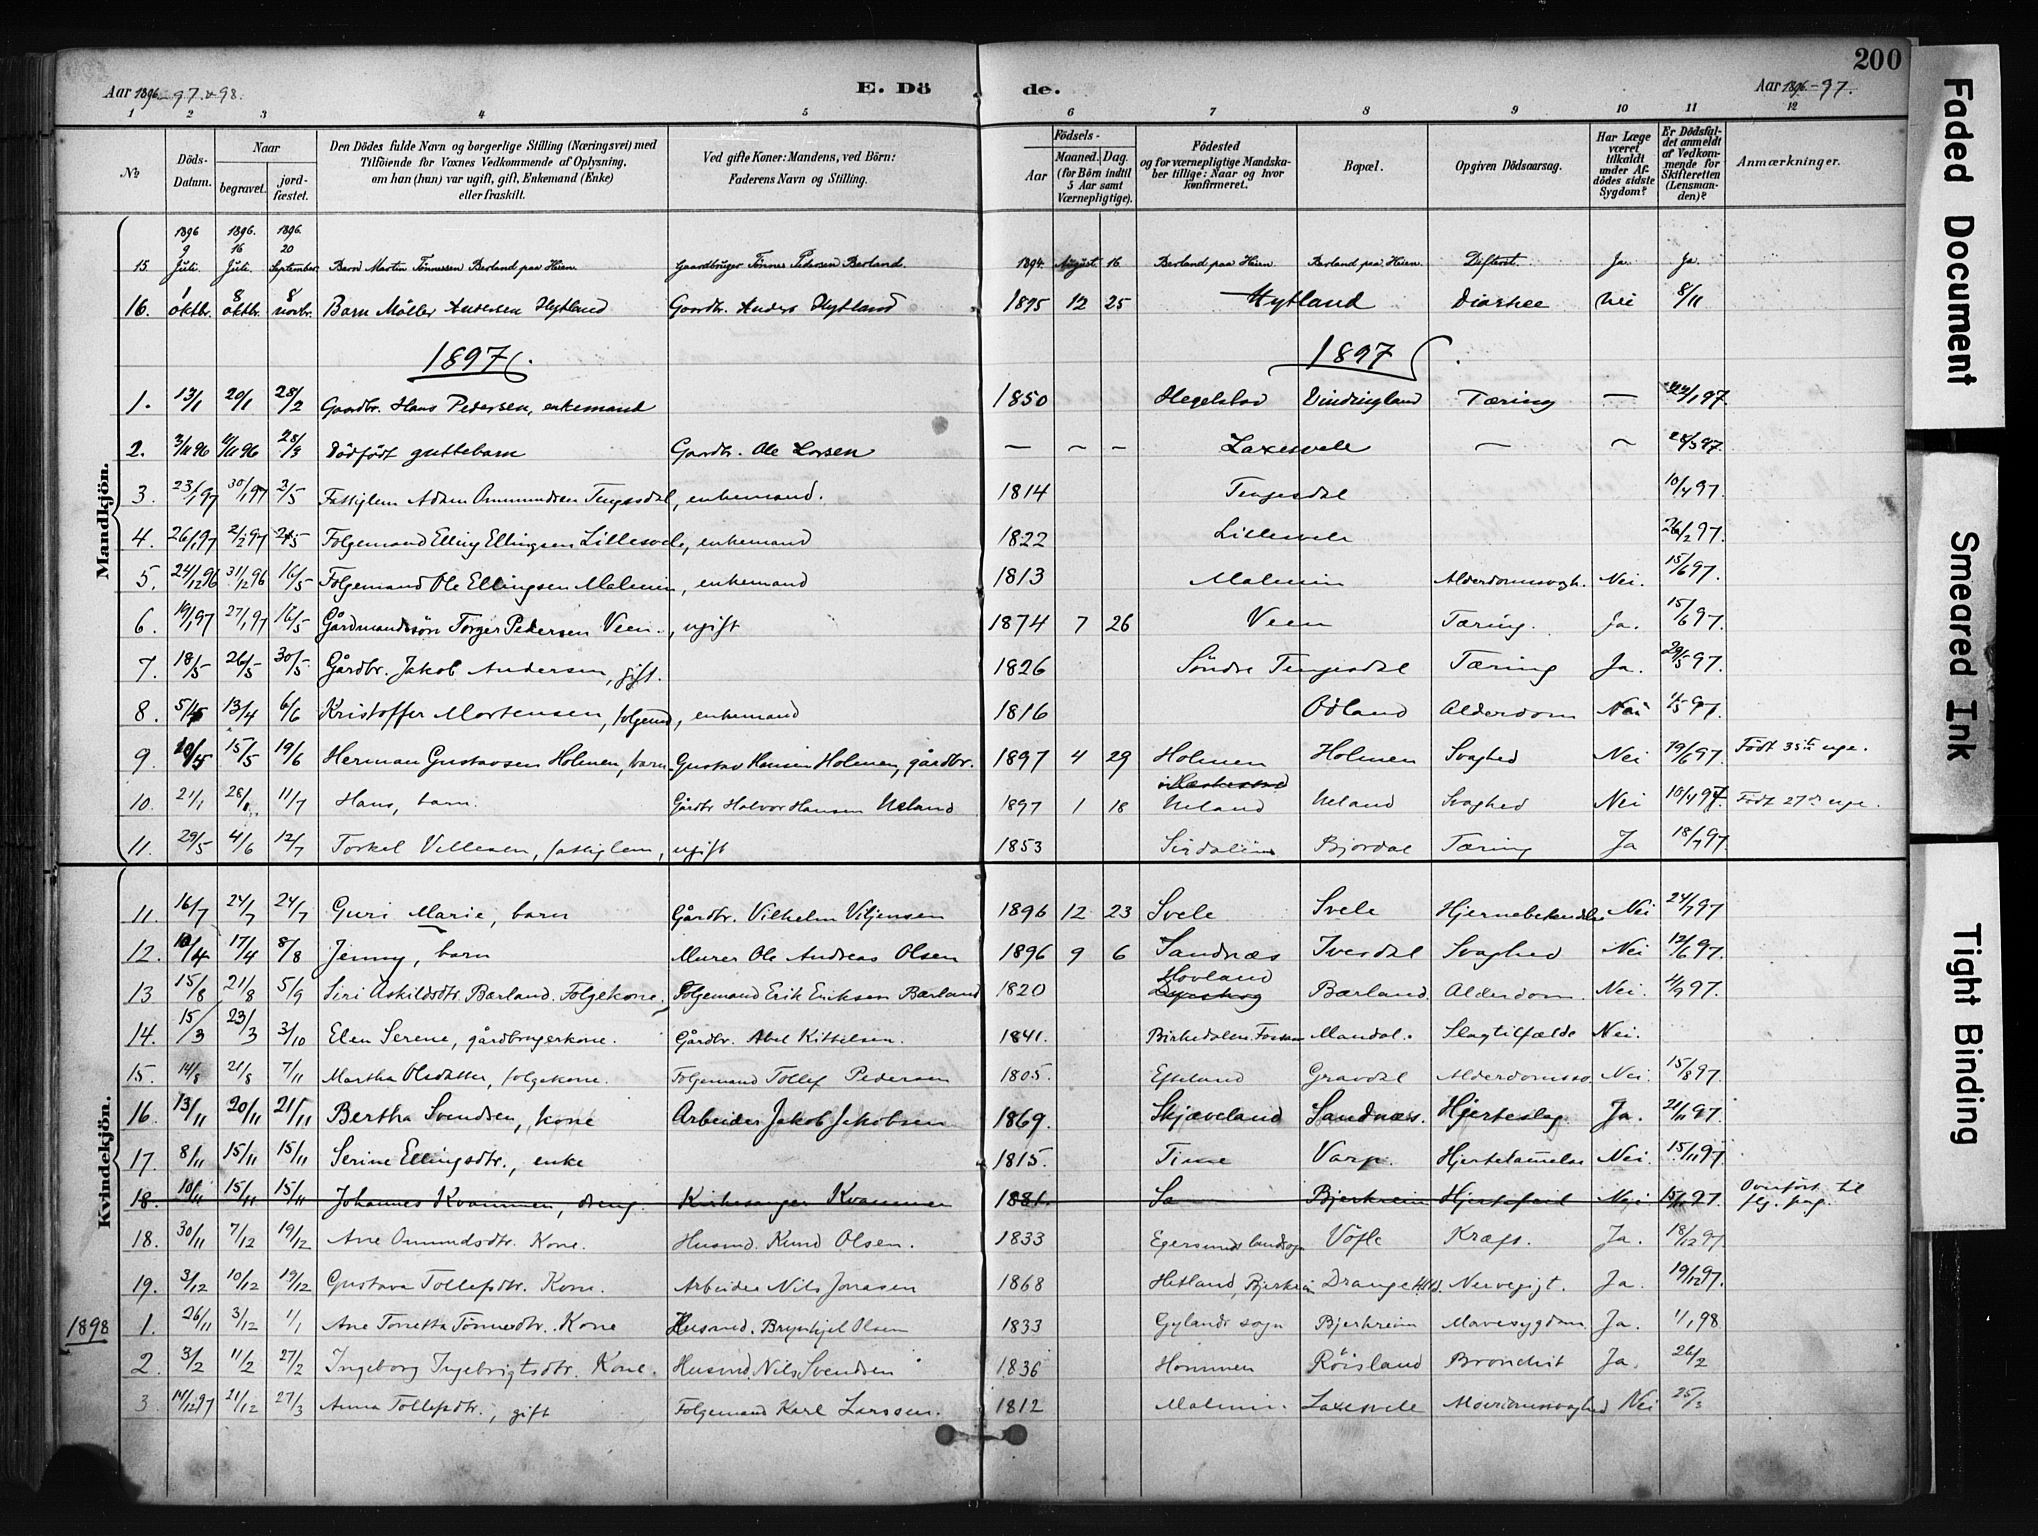 200
Aar 1896-97 & 98.
E. Dö
de.
Aar 1896-97.
1 2 3 4 5 6 7 8 9 10 11 12
№
Döds-Datum.
Naar
begravet.
jord-fæstet.
Den Dödes fulde Navn og borgerlige Stilling (Næringsvei) med
Tilföiende for Voxnes Vedkommende af Oplysning,
om han (hun) var ugift, gift, Enkemand (Enke)
eller fraskilt.
Ved gifte Koner: Mandens, ved Börn:
Faderens Navn og Stilling.
Födsels-
Aar
Maaned. Dag.
(for Börn indtil
5 Aar samt
Værnepligtige).
Födested
og for værnepligtige Mandska-
ber tillige: Naar og hvor
konfirmeret.
Bopæl.
Opgiven Dödsaarsag.
Har Læge
været
tilkaldt
under Af-
dödes sidste
Sygdom?
Er Dödsfal-
det anmeldt
af Vedkom-
mende for
Skifteretten
(Lensman-
den)?
Anmærkninger.
Mandkjön.
1896 1896. 1896.
9 16 20
15 Juli. Juli. September Barn Martin Tönnessen Berland paa Heien. Gaardbruger Tönnes Pedersen Berland. 1894. August. 16 Berland paa Heien Berland paa Heien Difterit. Ja. Ja.
16. 1 oktbr. 8 oktbr. 8 novbr. Barn Möller Andersen Hytland Gaardbr. Anders Hytland 1895 12 25 Hytland Diarhee Nei 8/11
1897. 1897.
1. 13/1 20/1 28/2 Gaardbr. Hans Pedersen, enkemand 1850 Hegelstad Vindingland Tæring — 22/1 97
2. 3/11 96 4/11 96 28/3 Dödfödt guttebarn Gaardbr. Ole Larsen — – – Laxesvele — – 28/3 97
3. 23/1 97 30/1 97 2/5 Fattiglem Adam Ommundsen Tengesdal, enkemand. 1814 Tengesdal 10/4 97.
4. 26/1 97 2/2 97 2/5 Folgemand Elling Ellingsen Lillesvele, enkemand 1822 Lillesvele 26/2 97.
5. 24/12 96 31/12 96 16/5 Folgemand Ole Ellingsen Malmin, enkemand 1813 Malmin Alderdomssvagh. Nei. 15/6 97.
6. 19/1 97 27/1 97 16/5 Gårdmandssön Torger Pedersen Veen., ugift 1874 7 26 Veen Tæring. Ja. 15/6 97.
7. 18/5 26/5 30/5. Gårdbr. Jakob Andersen, gift. 1826 Söndre Tengesdal Tæring Ja. 29/5 97.
8. 13/4 6/6 Kristoffer Mortensen, folgemd, enkemand 1816 Ödland Alderdom Nei
9. 10/5 15/5 19/6 Herman Gustavsen Holmen, barn Gustav Hansen Holmen, gårdbr. 1897 4 29 Holmen Holmen Svaghed Nei 19/6 97. Födt 35te uge.
10. 21/1 28/1 11/7 Hans, barn. Gårdbr Halvor Hansen Neland 1897 1 18 Neland Neland Svaghed Nei 10/7 97. Födt 27de uge.
11. 29/5 4/6 12/7 Torkel Villesen, fattiglem, ugift 1853 Sirdalen Bjordal Tæring Ja 18/7 97.
Kvindekjön.
11. 16/7 24/7 24/7 Guri Marie, barn Gårdbr. Vilhelm Viljensen 1896 12 23 Svele Svele Nei 24/7 97
12. 10/4 17/4 8/8 Jenny, barn Murer Ole Andreas Olsen 1896 9 6 Sandnæs Ivesdal Svaghed Nei 12/6 97.
13 15/8 21/8 5/9 Siri Askildsdtr. Bærland. Folgekone. Folgemand Erik Eriksen Bærland 1820 Hovland Bærland. Alderdom. Nei. 4/9 97.
14. 15/3 23/3 3/10 Elen Serene, gårdbrugerkone. Gårdbr. Abel Kittelsen. 1841. Birkedalen, Mandal. Slagtilfælde Nei.
15. 14/8 21/8 7/11 Martha Olsdatter, folgekone. Folgemand Tollef Pedersen 1805. Efteland Gravdal Alderdomssv. Nei. 15/8 97.
16. 13/11 20/11 21/11 Bertha Svendsen, kone Arbeider Jakob Jakobsen 1869. Skjæveland Sandnæs. Hjerteslag. Ja. 21/11 97.
17. 8/11 15/11 15/11 Serine Ellingsdtr., enke 1815. Time Varp. Hjertelammelse Nei. 15/11 97
18. 10/11 15/11 15/11 Johannes Kvammen, dreng. Kirkesanger Kvammen 1881. Sa Bjerkreim Hjertefeil Nei. 15/11 97. Overfört til flg. pag.
18. 30/11 7/12 19/12 Ane Omundsdtr. Kone. Husmd. Knud Olsen. 1833 Egersunds landsogn Vöfle Kræft. Ja. 18/12 97.
19. 3/12 10/12 19/12 Gustava Tollefsdtr. Kone. Arbeider Nils Jonasen 1868 Hetland, Bjerkreim Drange Nervegigt. Ja. 19/12 97.
1898 1. 26/11 3/12 1/1 Ane Tonetta Tönnesdtr. Kone Husmd. Brynhjel Olsen 1833 Gylands sogn Bjerkreim Mavesygdom. Ja. 1/1 98
2. 3/2 11/2 27/2 Ingeborg Ingebrigtsdtr. Kone. Husmd. Nils Svendsen 1836 Hommen Röisland Bronchit Ja. 26/2
3. 14/12 97 21/12 27/3 Anna Tollefsdtr., gift Folgemand Karl Larssen. 1812 Malmin. Laxesvele Nei 25/3
Faded Document
Smeared Ink
Tight Binding